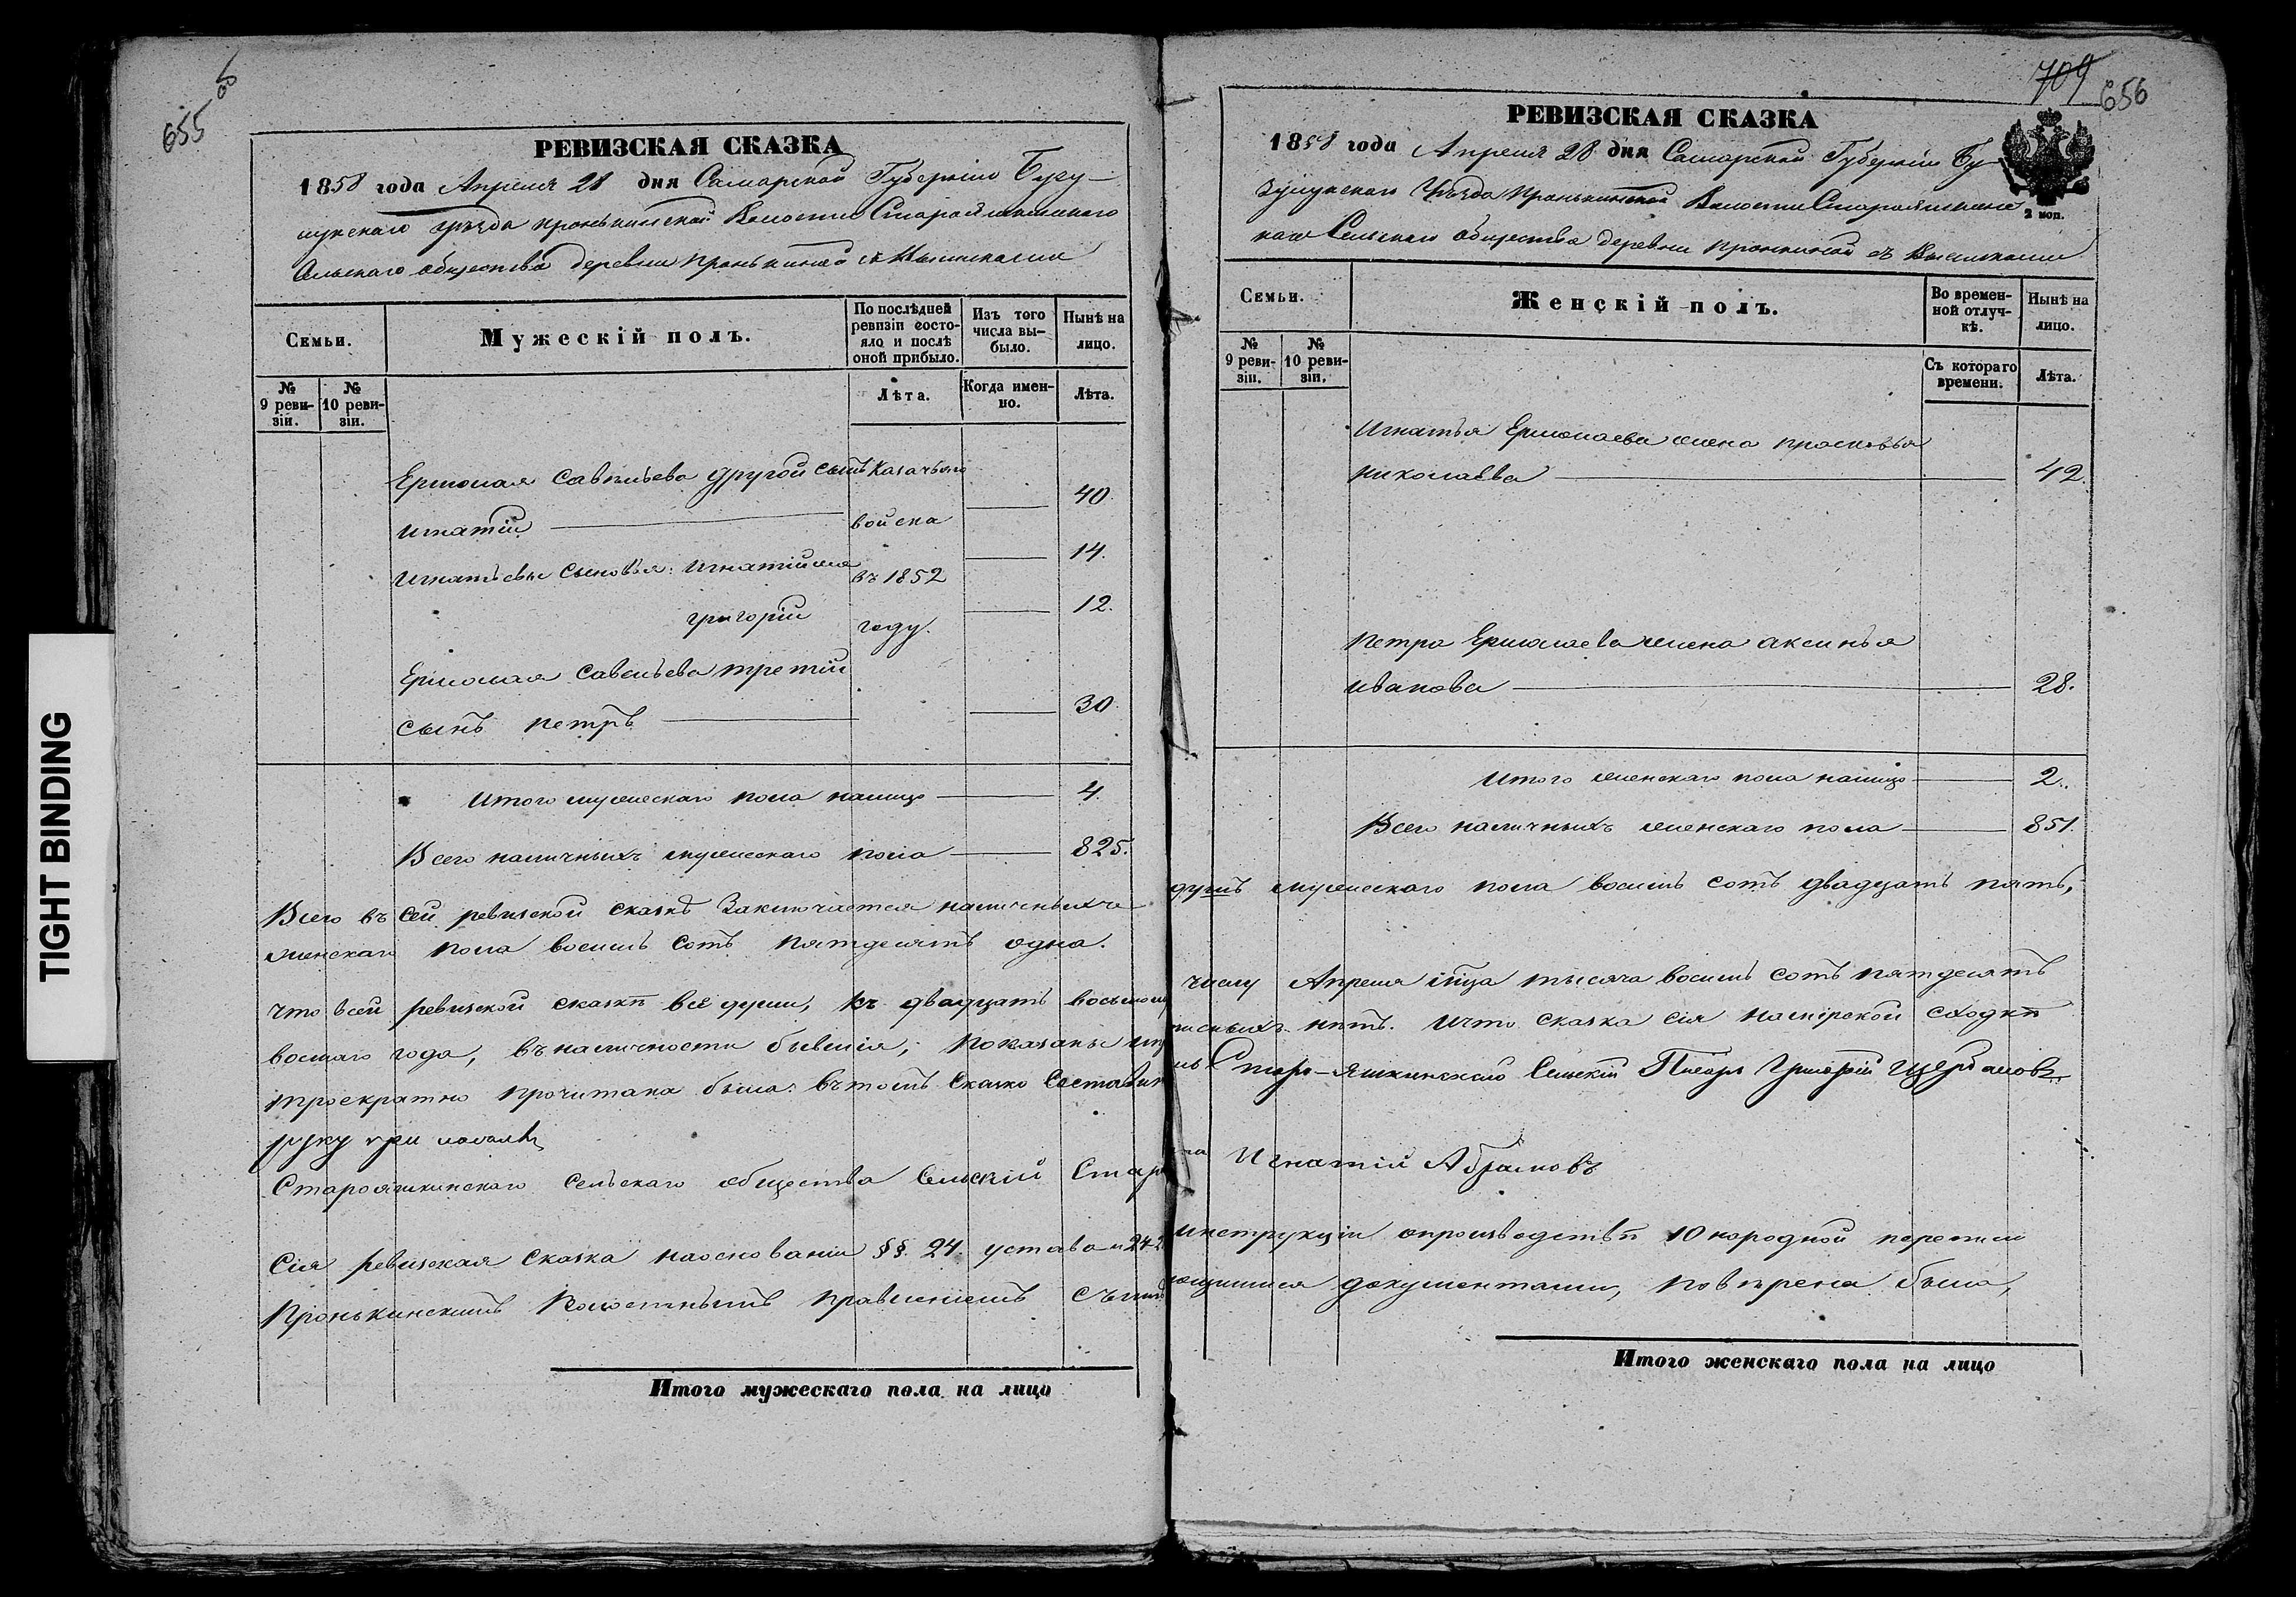 TIGHT BINDING
655 об
РЕВИЗСКАЯ СКАЗКА
1858 года Апреля 28 дня Самарской Губерніи Бузу-
лукскаго Уѣзда Пронькинской Волости Старояшкинскаго
Сельскаго общества деревни Пронькиной съ Выселками
Семьи.
Мужескій полъ.
По послѣдней ревизіи состояло и послѣ оной прибыло.
Изъ того числа вы-было.
Нынѣ на лицо.
№ 9 реви-зіи.
№ 10 реви-зіи.
Лѣта.
Когда имен-но.
Лѣта.
Ермолая Савельева другой сынъ Казачьяго
игнатій войска 40.
Игнатьевы сыновья: игнатій въ 1852 14.
григорій году. 12.
Ермолая Савельева третій
сынъ петръ 30.
Итого мужескаго пола налицо 4.
Всего наличныхъ мужескаго пола 825.
Всего въ сей ревизской сказкѣ Заключается наличныхъ
женскаго пола восемь сотъ пятдесятъ одна.
что всей ревизской сказкѣ всѣ души, къ двадцать восьмому
восмаго года, въ наличности бывшія, показаны
троекратно прочитана была. въ томъ
руку приложилъ
Старояшкинскаго сельскаго общества Сельскій Стар
Сія ревизская сказка наосновании §§. 24. устава и 242
Пронькинскимъ Волостнымъ правленіемъ
Итого мужескаго пола на лицо
709 656
РЕВИЗСКАЯ СКАЗКА
1858 года Апреля 28 дня Самарской Губерніи Бу-
зулукскаго Уѣзда Пронькинской Волости Старояшкинс
каго Сельскаго общества деревни пронкиной съ Выселками
2 коп.
Семьи.
Женскій полъ.
Во времен-ной отлуч-кѣ.
Нынѣ на лицо.
№ 9 реви-зіи.
№ 10 реви-зіи.
Съ котораго времени.
Лѣта.
Игнатья Ермолаева жена прасковья
николаева 42.
Петра Ермолаева жена аксинья
иванова 28.
Итого женскаго пола налицо 2.
Всего наличныхъ женскаго пола 851.
душъ мужескаго пола восемь сотъ двадцать пять,
числу Апреля мѣсяца тысяча восемь сотъ пятдесятъ
нѣтъ. Ичто сказка сія намірской сходкѣ
Старо-Яшкинскаго Сельскій Писарь Григорій Щербаковъ
Игнатій Абрамовъ
инструкціи опроизводствѣ 10 народной переписи
документами, повѣрена была,
Итого женскаго пола на лицо